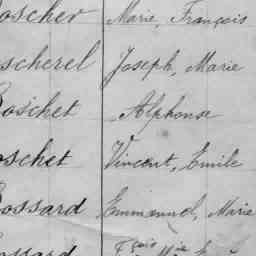 oscher Marie, François
scherel Joseph, Marie
Boschet Alphonse
oschet Vincent, Emile
Bossard Emmanuel, Marie
ossard Fçois Mie